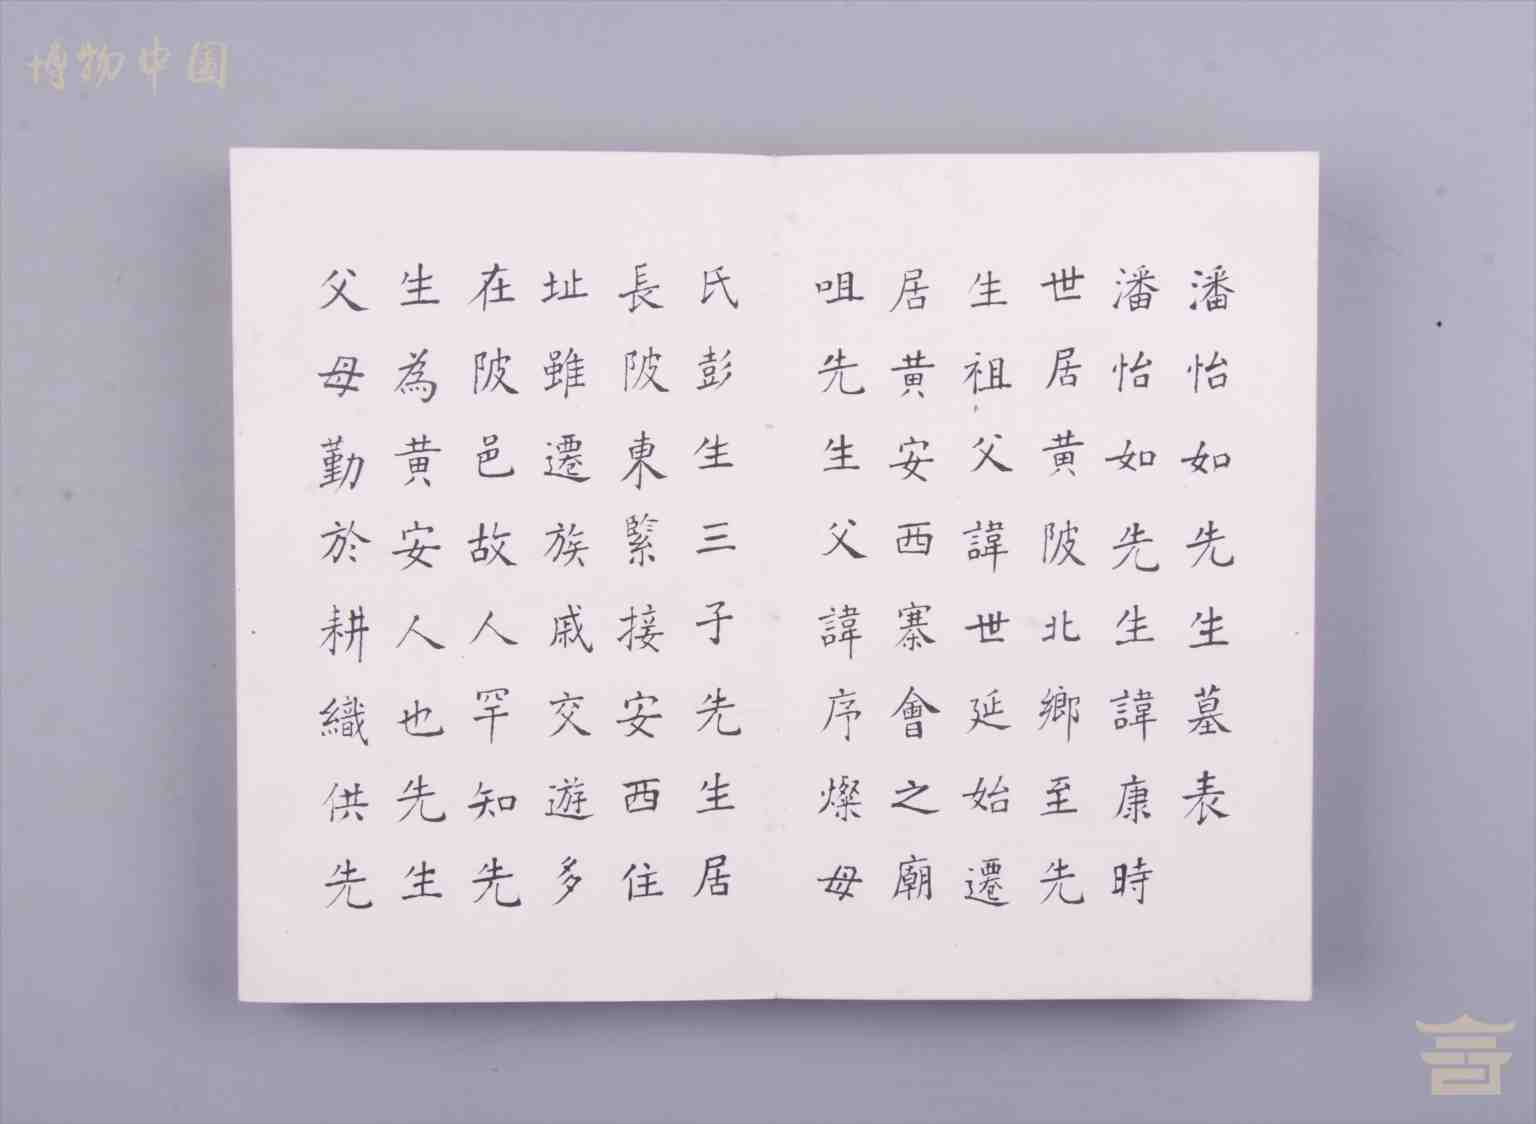 博物中国
潘怡如先生墓表
潘怡如先生諱康時
世居黃陂北鄉至先
生祖父諱世延始遷
居黃安西寨會之廟
咀先生父諱序燦母
氏彭生三子先生居
長陂東緊接安西住
址雖遷族戚交遊多
在陂邑故人罕知先
生為黃安人也先生
父母勤於耕織供先